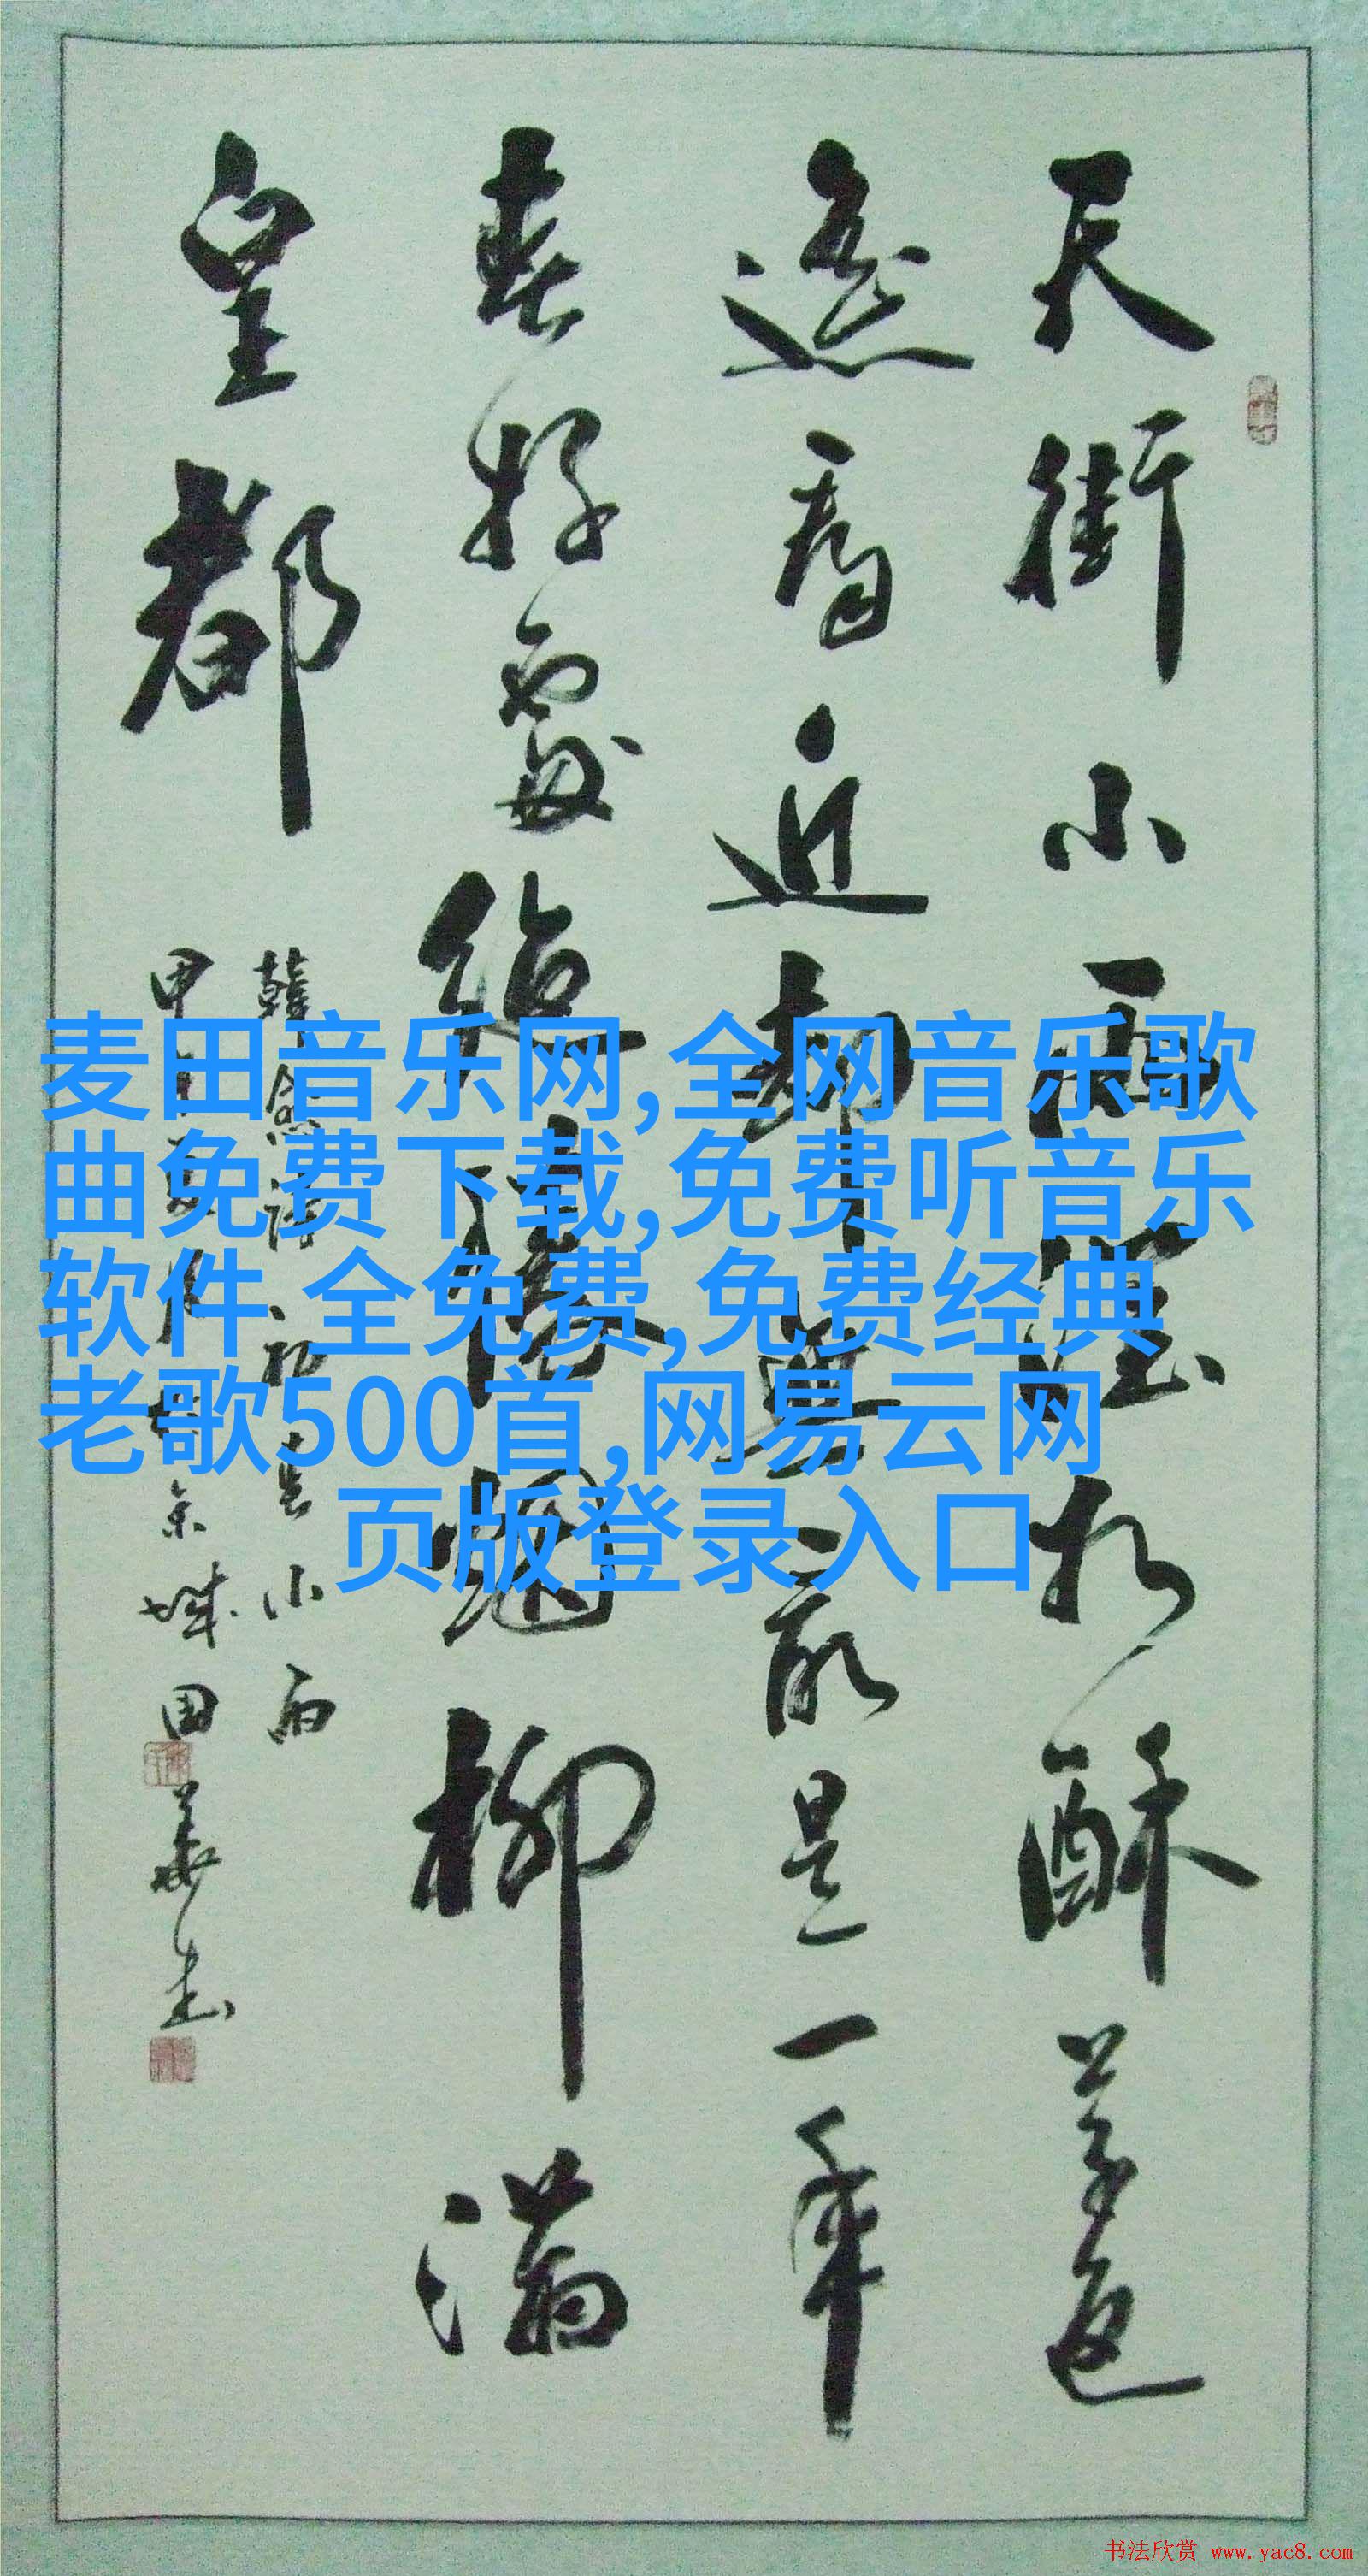 天街小雨潤如酥草色
遥看近却無最是一年
春好處絶勝烟柳滿
皇都
韓愈詩初春小雨
甲夏月京城国華书
麦田音乐网,全网音乐歌
曲免费下载,免费听音乐
软件 全免费,免费经典
老歌500首,网易云网
页版登录入口
书法欣赏 www.yac8.com